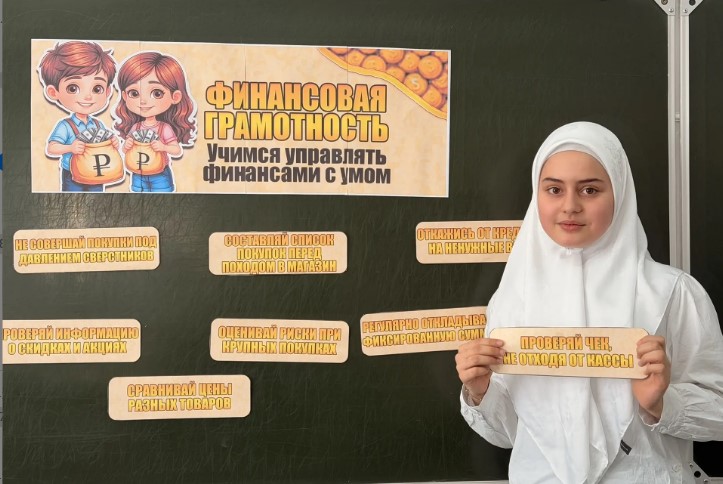 ФИНАНСОВАЯ
ГРАМОТНОСТЬ
Учимся управлять
финансами с умом
НЕ СОВЕРШАЙ ПОКУПКИ ПОД
ДАВЛЕНИЕМ СВЕРСТНИКОВ
СОСТАВЛЯЙ СПИСОК
ПОКУПОК ПЕРЕД
ПОХОДОМ В МАГАЗИН
ОТКАЖИСЬ ОТ
НА НЕНУЖНЫЕ
ИНФОРМАЦИЮ
О СКИДКАХ И АКЦИЯХ
ОЦЕНИВАЙ РИСКИ ПРИ
КРУПНЫХ ПОКУПКАХ
РЕГУЛЯРНО
ФИКСИРОВАННУЮ
ПРОВЕРЯЙ ЧЕК,
НЕ ОТХОДЯ ОТ КАССЫ
СРАВНИВАЙ ЦЕНЫ
РАЗНЫХ ТОВАРОВ